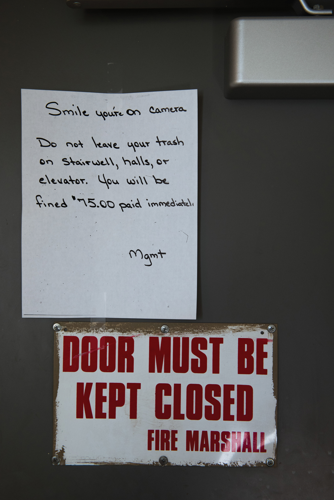 Smile you're on camera
Do not leave your trash
on stairwell, halls, or
elevator. You will be
fined $75.00 paid immediatel.
Mgmt
DOOR MUST BE
KEPT CLOSED
FIRE MARSHALL